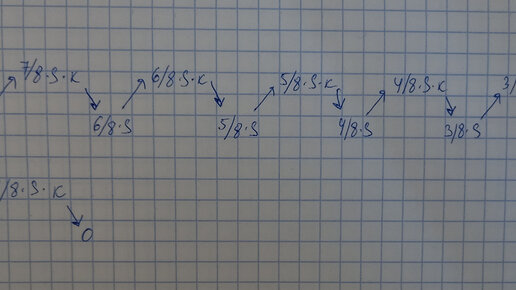 7/8·S·к 6/8·S·к 5/8·S·к 4/8·S·к 3/
6/8·S 5/8·S 4/8·S 3/8·S
/8·S·к
0